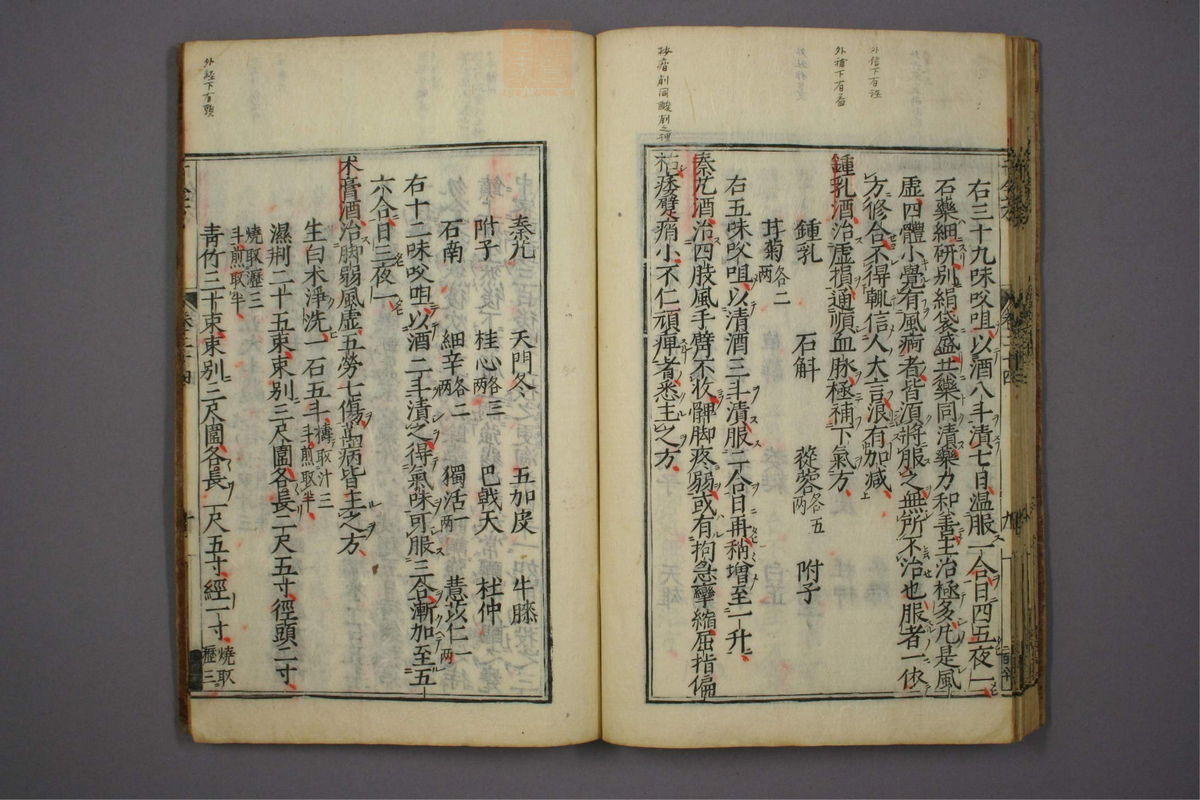 右三十九味㕮咀以酒八斗漬七日溫服一合日四五夜一
石藥細研別絹袋盛共藥同漬藥力和善主治極多凡是風
虛四體小覺有風痾者皆須將服之無所不治也服者一依
方修合不得輒信人大言浪有加減
鍾乳酒治虛損通順血脉極補下氣方
鍾乳 石斛 蓯蓉各五兩 附子
甘菊各二兩
右五味㕮咀以清酒三斗漬服二合日再稍增至一升
秦艽酒治四肢風手臂不收髀脚疼弱或有拘急攣縮屈指偏
枯痿躄痟小不仁頑痺者悉主之方
秦艽 天門冬 五加皮 牛膝
附子 桂心各三兩 巴戟天 杜仲
石南 細辛各二兩 獨活一兩 薏苡仁一兩
右十二味㕮咀以酒二斗漬之得氣味可服三合漸加至五
六合日三夜一
朮膏酒治脚弱風虛五勞七傷萬病皆主之方
生白朮淨洗一石五斗擣取汁三斗煎取半
濕荆二十五束束別三尺圍各長二尺五寸徑頭二寸
燒取瀝三斗煎取半
青竹三十束束別三尺圍各長一尺五寸經一寸燒取瀝三
外信下有注
外補下有益
外經下有頭